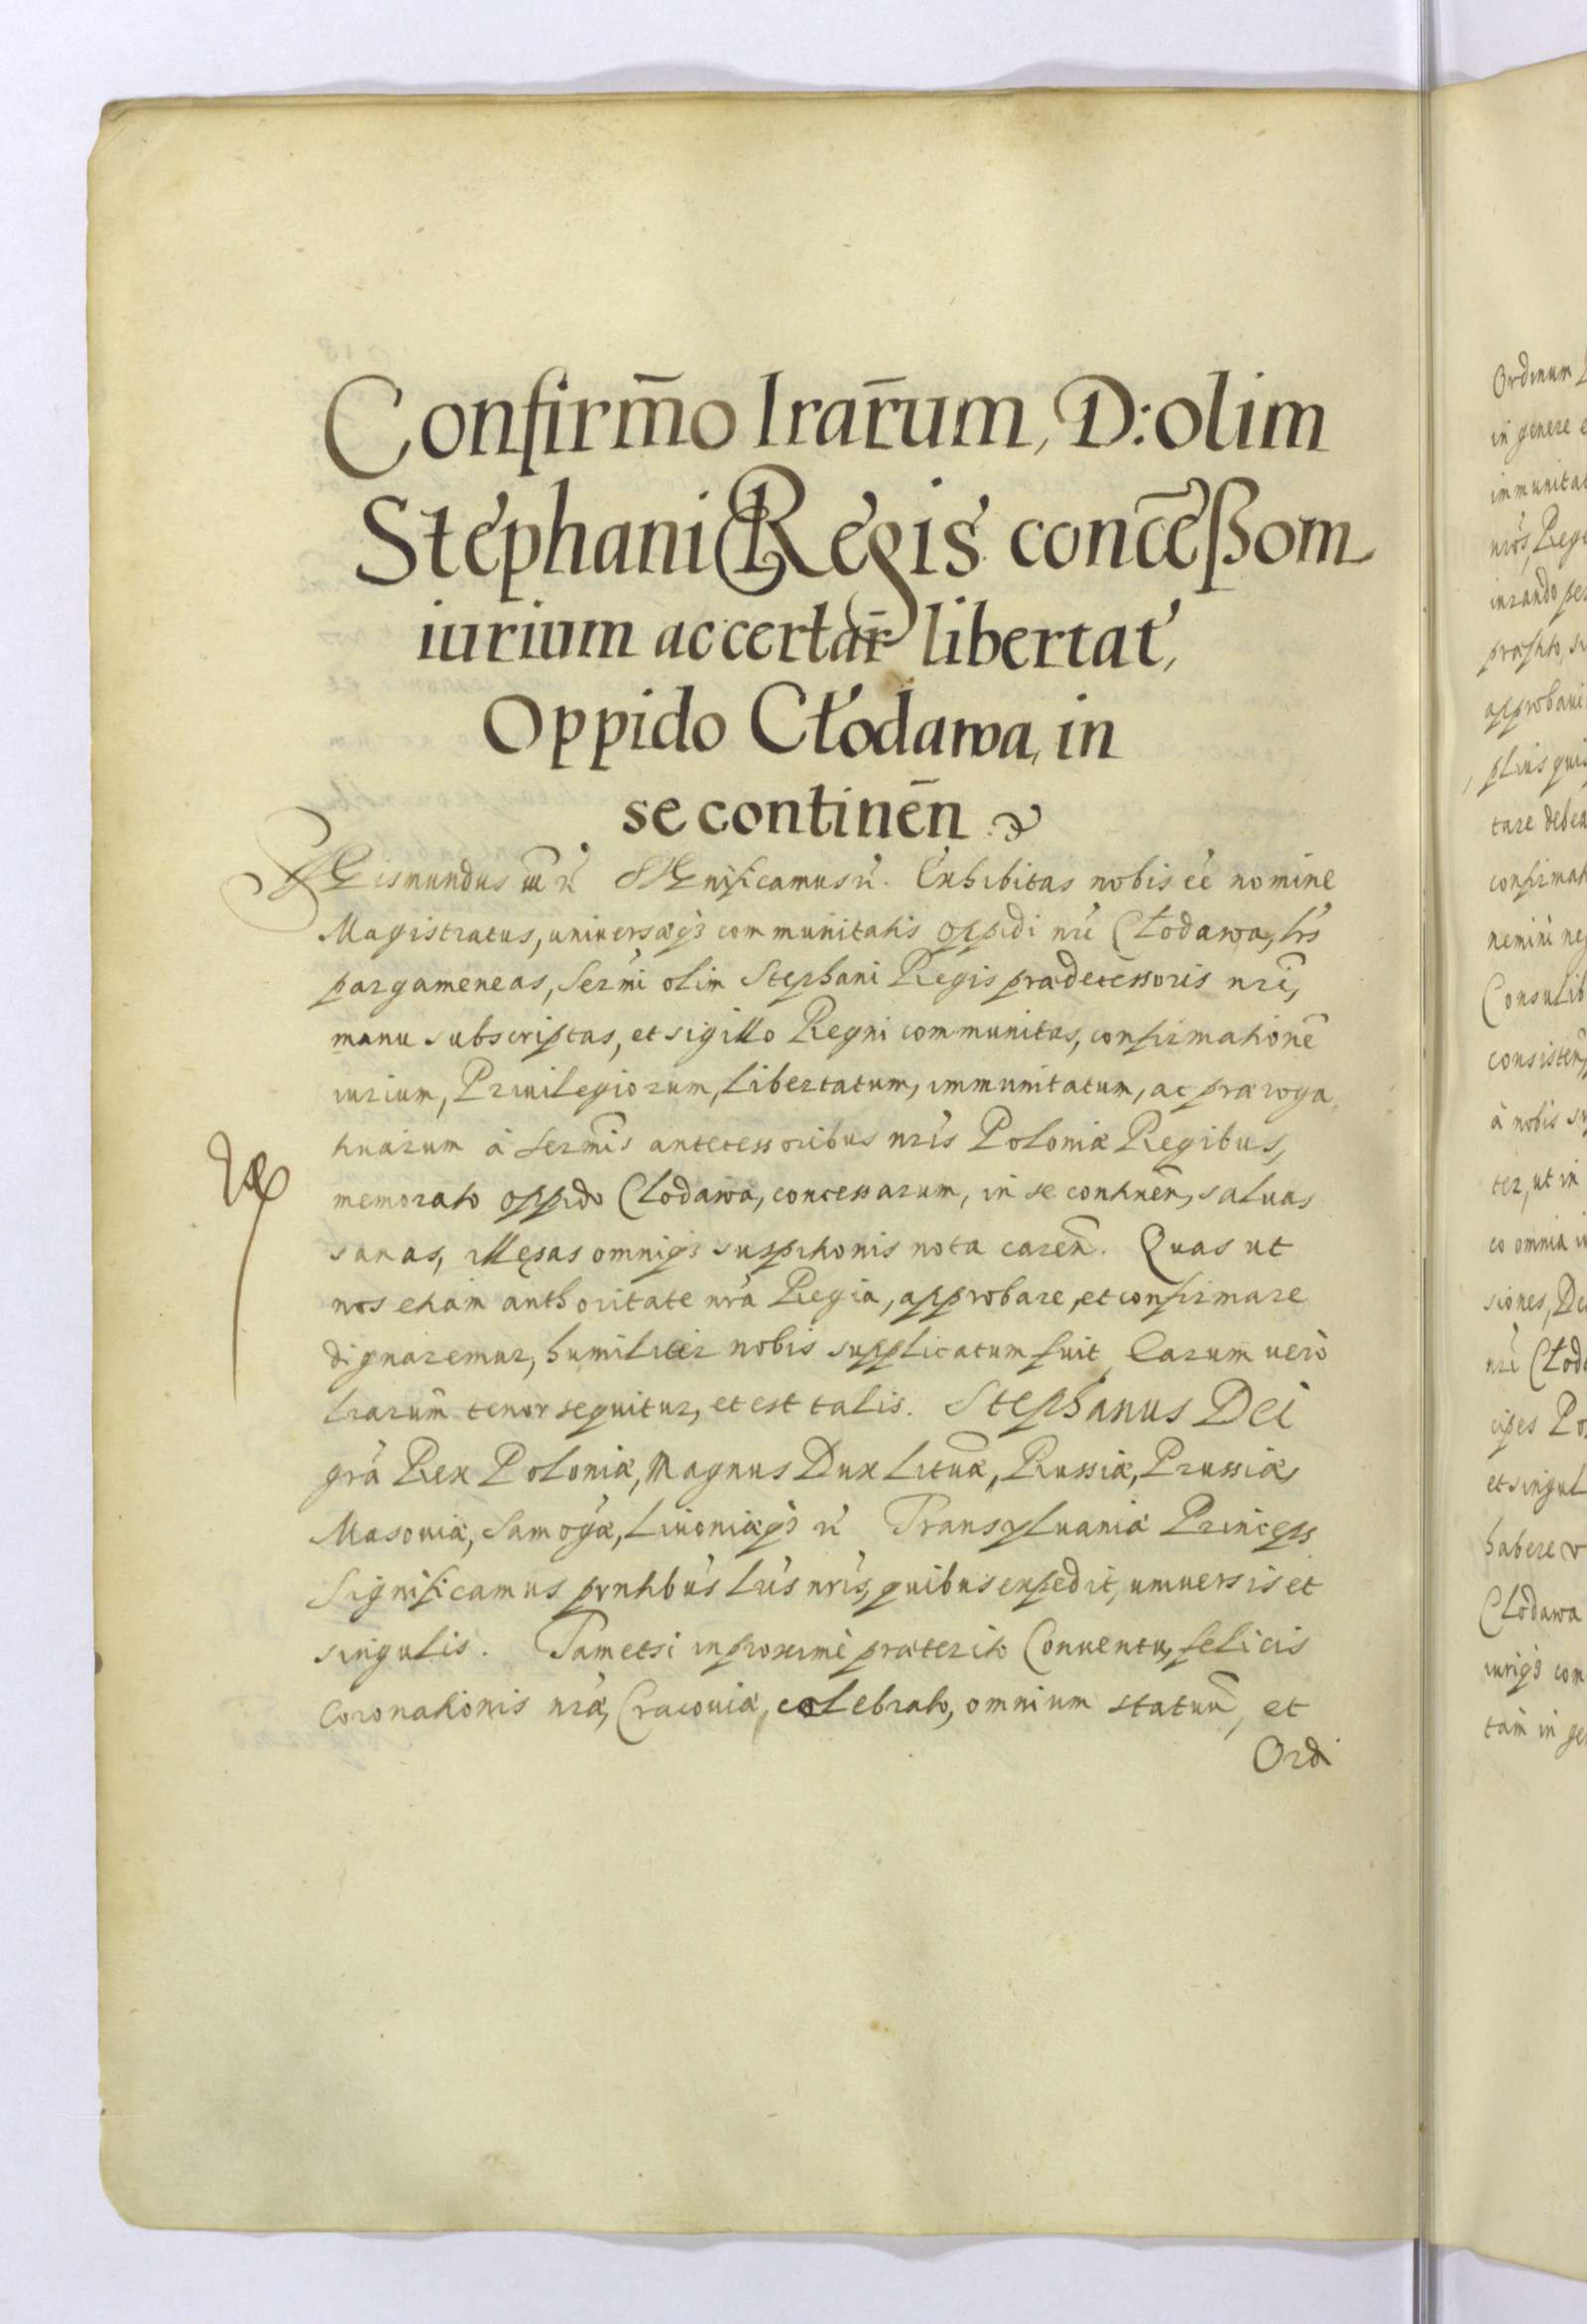 Confirm̄o lrar̄um, D: olim
Stephani Regis conc̄eßom
iurium ac certar̄ libertat,
Oppido Cłodawa, in
se continēn
Sigismundus iii rc̄ Significamus rc̄. Exhibitas nobis eē nomine
Magistratus, universæq3 communitatis oppidi nri Cłodawa, lrs
pargameneas, Sermi olim Stephani Regis prædecessoris nri,
manu subscriptas, et sigillo Regni communitas, confirmationē
iurium, Privilegiorum, libertatum, immunitatum, ac præroga
tivarum à sermis antecessoribus nris Poloniæ Regibus,
memorato oppido Clodawa, concessarum, in se continen̄, saluas
sanas, illęsas omniq3 suspitionis nota caren̄. Quas ut
nos etiam authoritate nrā Regia, approbare, et confirmare
dignaremur, humiliter nobis supplicatum fuit Earum verò
lrarum̄ tenor sequitur, et est talis. Stephanus Dei
grā Rex Poloniæ, Magnus Dux Lituæ, Russiæ, Prussiæ,
Masoviæ, Samogæ, Livoniæq3 rc̄ Transylvaniæ Princeps
Significamus prntibus lris nris, quibus expedit, universis et
singulis. Tametsi in proximè præterito Conventu, felicis
Coronationis nræ, Cracoviæ, celebrato, omnium statuū, et
Ordi
Ordinum
in genere
immunitat
nros, Reg
iurando per
præstito, su
approbave
pluis qui
tare debea
confirmat
nemini ne
Consulib
consisten
à nobis su
ter, ut in
co omnia i
siones, De
nri Clod
cipes Po
et singul
habere v
Clodawa
iurisq3 com
tam in ge